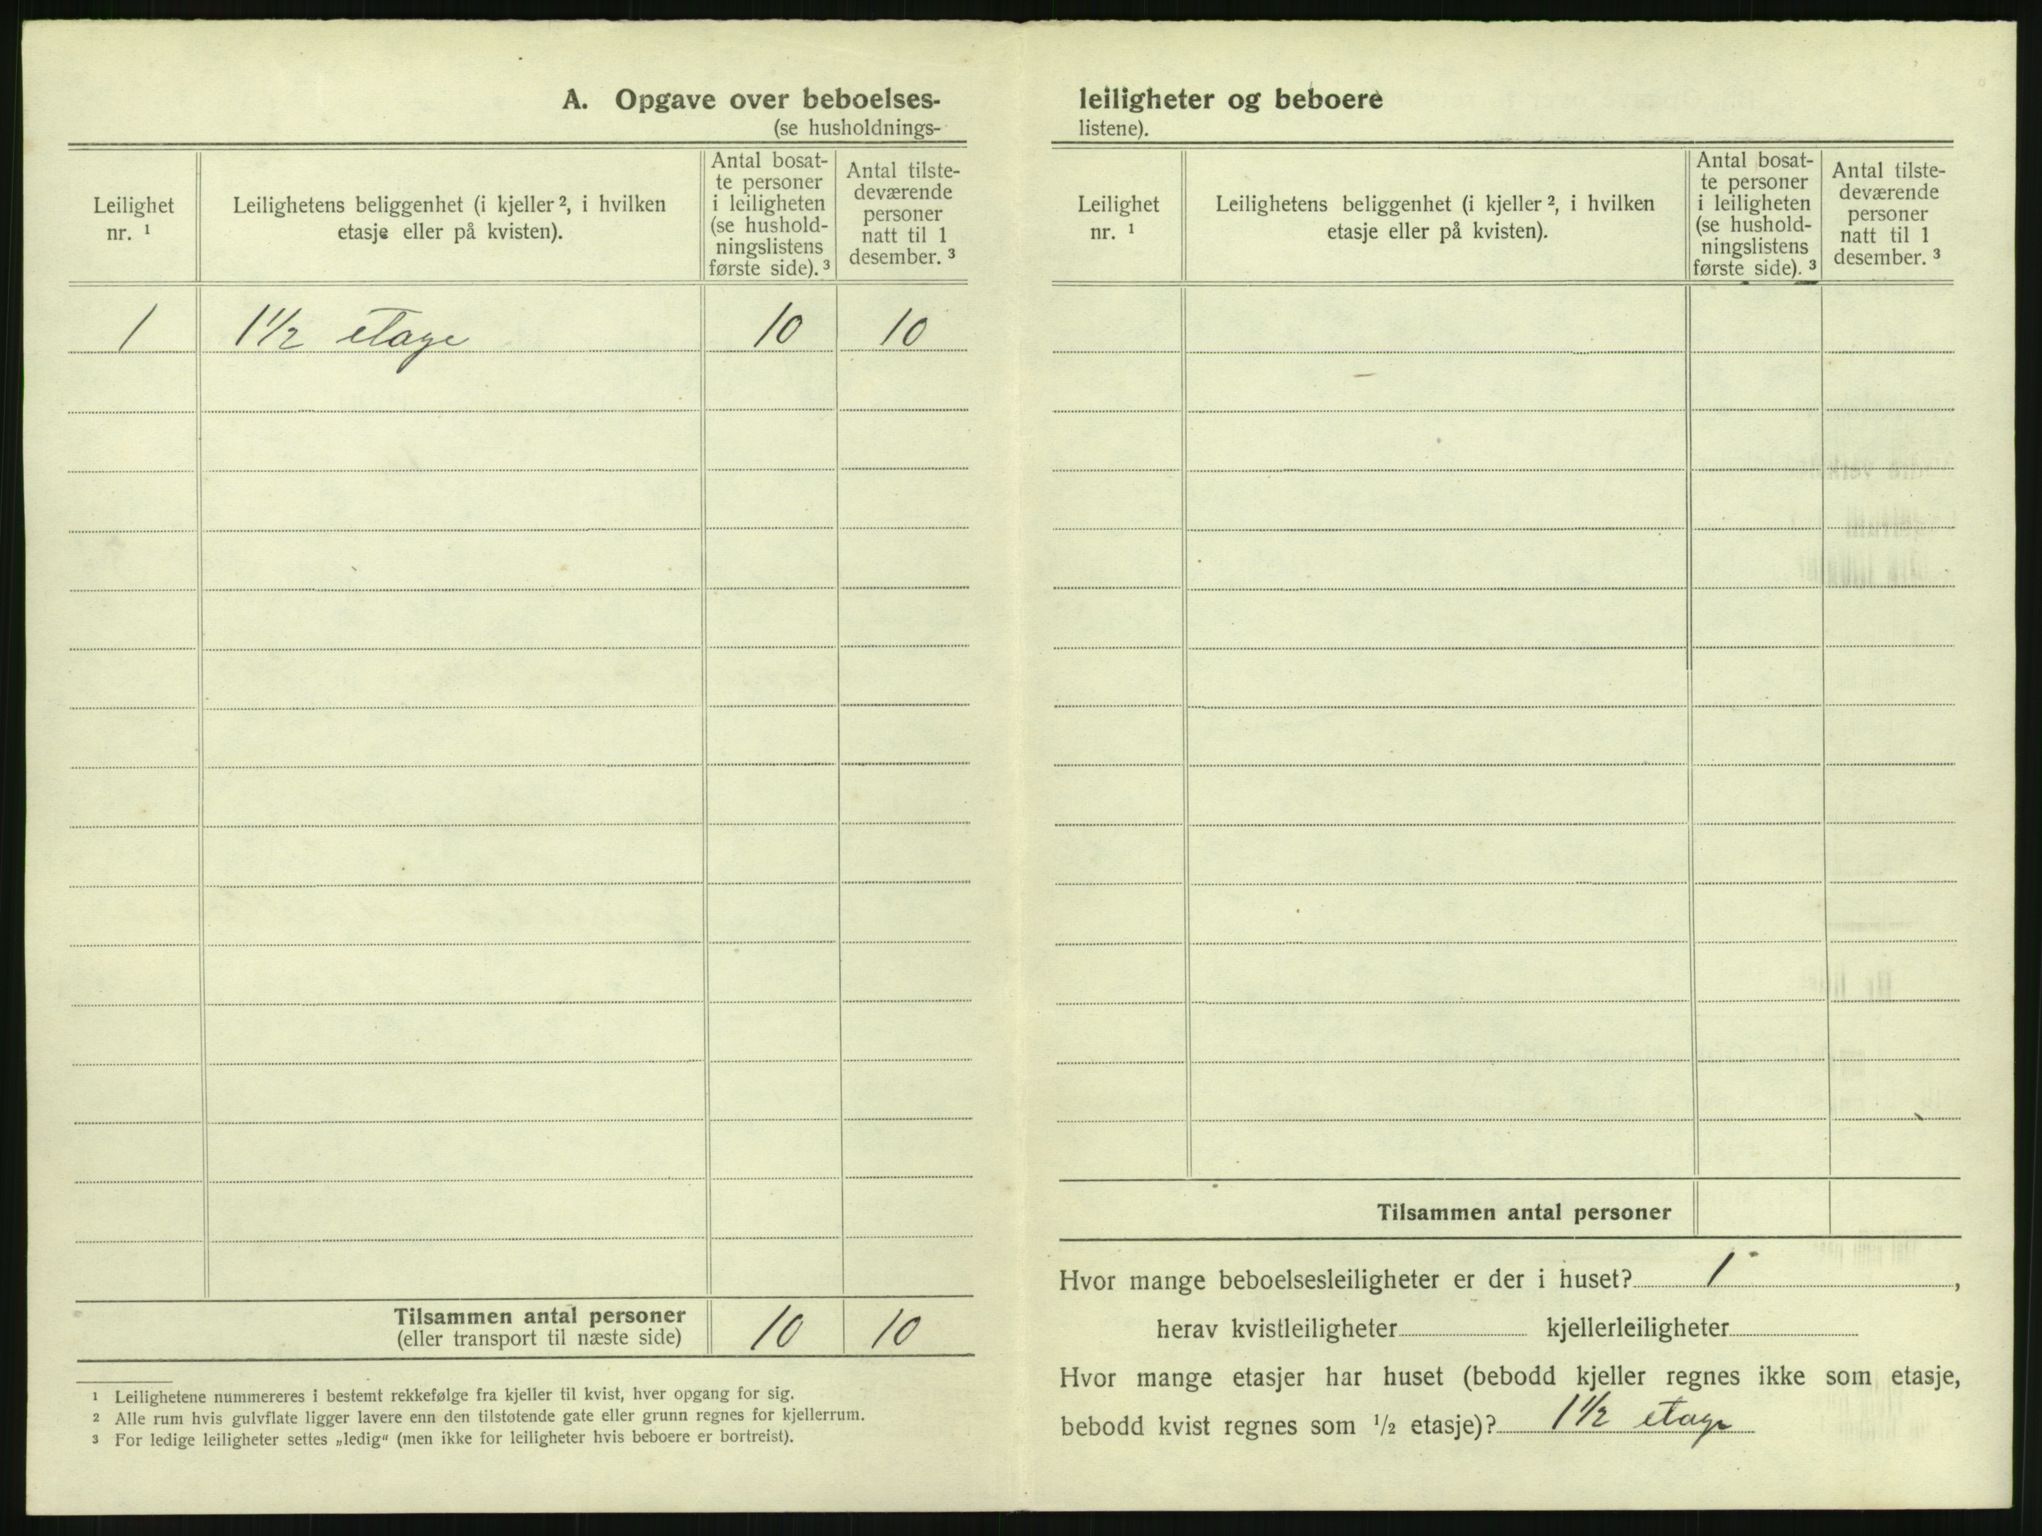 A. Opgave over beboelses-
(se husholdnings-
Leilighet
nr. ¹
Leilighetens beliggenhet (i kjeller ², i hvilken
etasje eller på kvisten).
Antal bosat-
te personer
i leiligheten
(se hushold-
ningslistens
første side). ³
Antal tilste-
deværende
personer
natt til 1
desember. ³
1 1½ etage 10 10
Tilsammen antal personer
(eller transport til næste side)
10 10
¹ Leilighetene nummereres i bestemt rekkefølge fra kjeller til kvist, hver opgang for sig.
² Alle rum hvis gulvflate ligger lavere enn den tilstøtende gate eller grunn regnes for kjellerrum.
³ For ledige leiligheter settes „ledig" (men ikke for leiligheter hvis beboere er bortreist).
leiligheter og beboere
listene).
Leilighet
nr. ¹
Leilighetens beliggenhet (i kjeller ², i hvilken
etasje eller på kvisten).
Antal bosat-
te personer
i leiligheten
(se hushold-
ningslistens
første side). ³
Antal tilste-
deværende
personer
natt til 1
desember. ³
Tilsammen antal personer
Hvor mange beboelsesleiligheter er der i huset? 1,
herav kvistleiligheter kjellerleiligheter
Hvor mange etasjer har huset (bebodd kjeller regnes ikke som etasje,
bebodd kvist regnes som ½ etasje)? 1½ etage